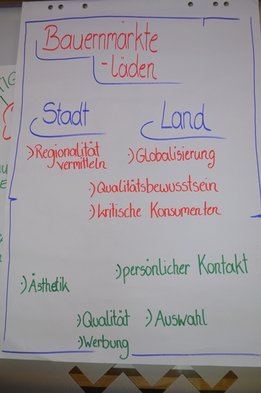 Bauernmärkte
-läden
Stadt
Land
:) Regionalität
vermitteln
:) Globalisierung
:) Qualitätsbewusstsein
:) kritische Konsumenten
:) persönlicher Kontakt
:) Ästhetik
:) Qualität
:) Auswahl
:) Werbung